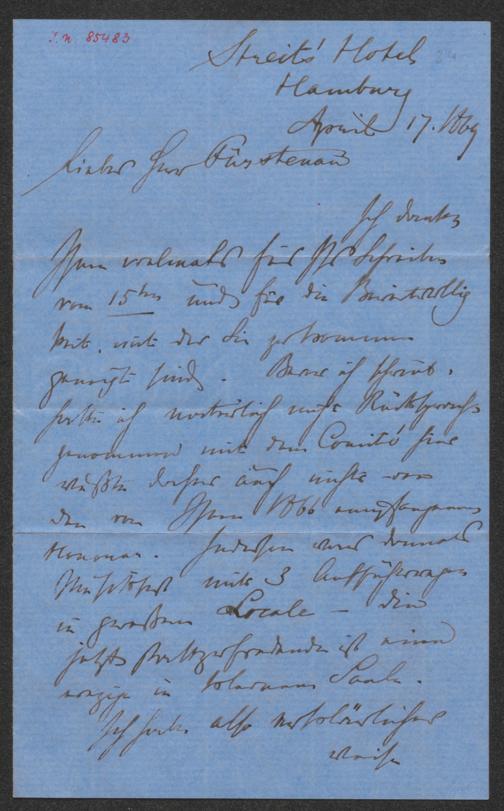 I. N. 85483
Streits' Hotel
Hamburg
April 17. 1869
Lieber Herr Fürstenau
Ich danke
Ihnen vielmals für Ihr Schreiben
vom 15ten und für die Bereitwillig
keit, mit der Sie zu kommen
geneigt sind. Bevor ich schrieb,
hatte ich natürlich nicht Rücksprache
genommen mit dem Comité hier
wußte daher auch nichts von
dem von Ihnen 1866 empfangenen
Honorar. Indessen war damals
Musikfest mit 3 Aufführungen
in großem Locale – die
jetzt stattzufindende ist eine
einzige in kleinerem Saale.
Ich habe also
Weise